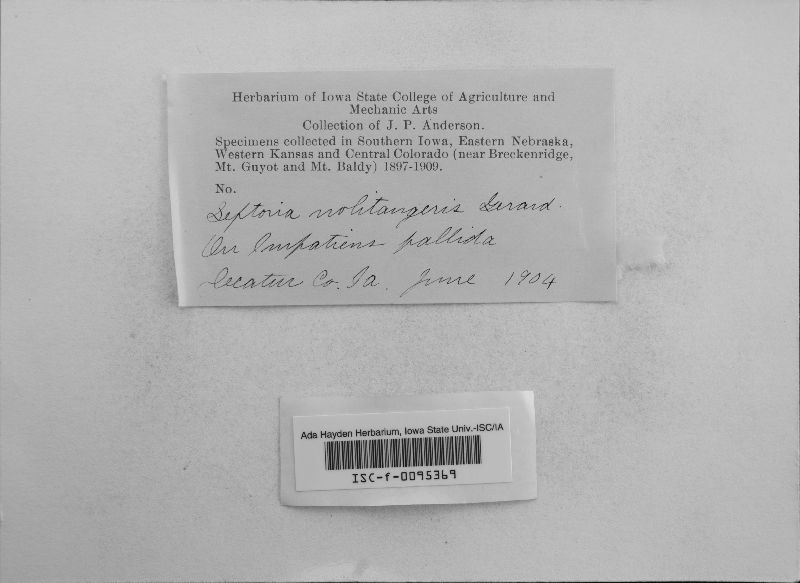 Herbarium of Iowa State College of Agriculture and
Mechanic Arts
Collection of J. P. Anderson.
Specimens collected in Southern Iowa, Eastern Nebraska,
Western Kansas and Central Colorado (near Breckenridge,
Mt. Guyot and Mt. Baldy) 1897-1909.
No.
Septoria nolitangeris Gerard.
On Impatiens pallida
Decatur Co. Ia. June 1904
Ada Hayden Herbarium, Iowa State Univ.-ISC/IA
ISC-f-0095369